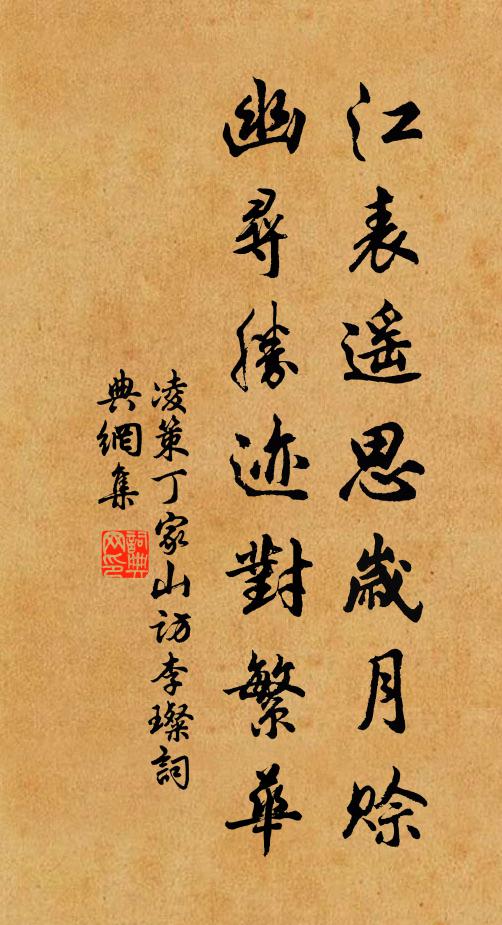 江表遥思歲月賒
幽尋勝迹對繁華
凌策丁家山访李璨詞
典網集
詞典
网印